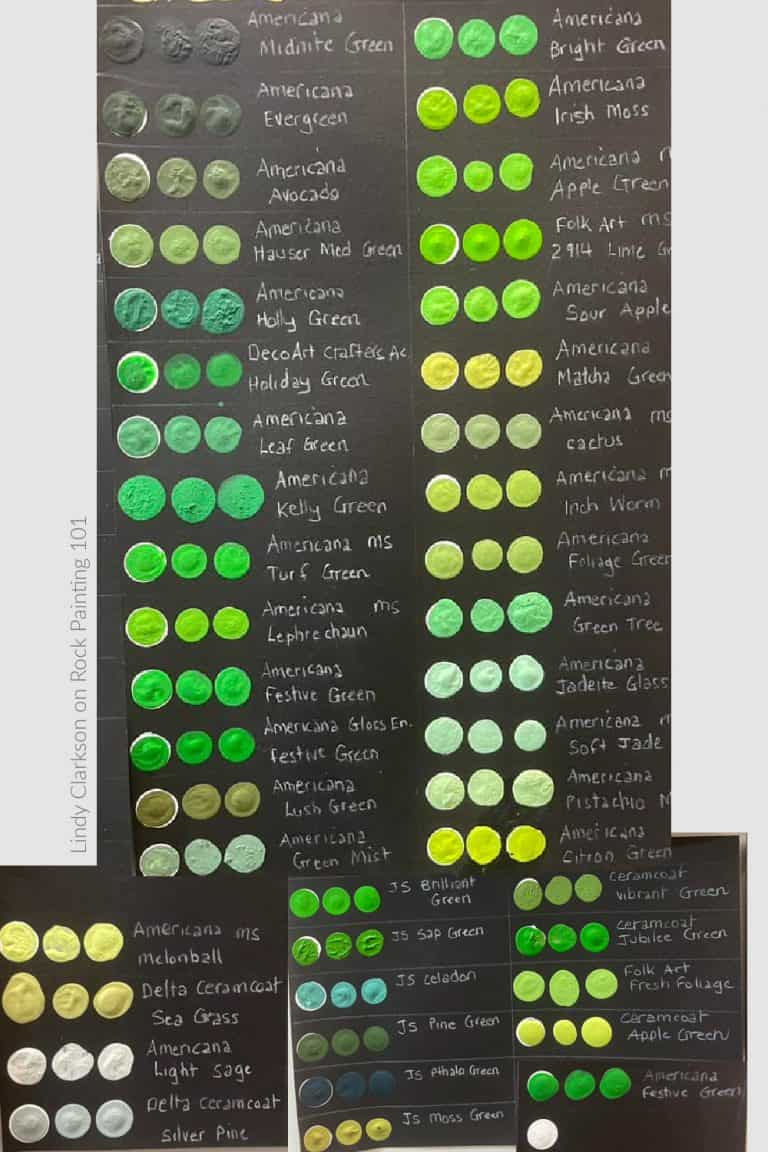 Americana
Midnite Green
Americana
Evergreen
Americana
Avocado
Americana
Hauser Med Green
Americana
Holly Green
DecoArt Crafters Ac
Holiday Green
Americana
Leaf Green
Americana
Kelly Green
Americana ms
Turf Green
Americana ms
Lephrechaun
Americana
Festive Green
Americana Gloss En.
Festive Green
Americana
Lush Green
Americana
Green Mist
Americana
Bright Green
Americana
Irish Moss
Americana
Apple Green
Folk Art ms
2914 Lime
Americana
Sour Apple
Americana
Matcha Green
Americana ms
cactus
Americana
Inch Worm
Americana
Foliage Green
Americana
Green Tree
Americana
Jadeite Glass
Americana
Soft Jade
Americana
Pistachio
Americana
Citron Green
Lindy Clarkson on Rock Painting 101
Americana ms
melonball
Delta Ceramcoat
Sea Grass
Americana
Light Sage
Delta Ceramcoat
Silver Pine
JS Brilliant
Green
JS Sap Green
JS Celadon
JS Pine Green
JS Pthalo Green
JS Moss Green
Ceramcoat
Vibrant Green
Ceramcoat
Jubilee Green
Folk Art
Fresh Foliage
Ceramcoat
Apple Green
Americana
Festive Green